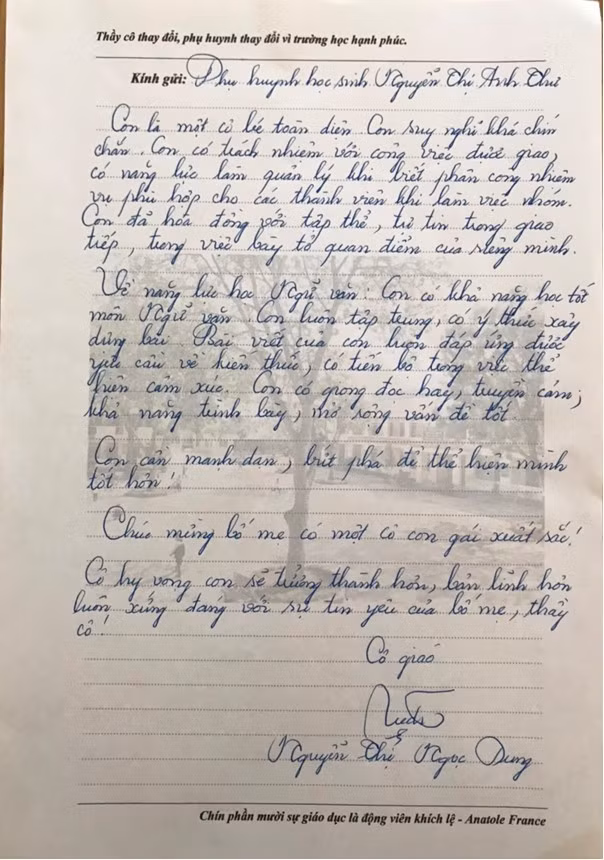 Thầy cô thay đổi, phụ huynh thay đổi vì trường học hạnh phúc.
Kính gửi: Phụ huynh học sinh Nguyễn Thị Anh Thư
Con là một cô bé toàn diện. Con suy nghĩ khá chín
chắn. Con có trách nhiệm với công việc được giao,
có năng lực làm quản lý khi biết phân công nhiệm
vụ phù hợp cho các thành viên khi làm việc nhóm.
Con đã hòa đồng với tập thể, tự tin trong giao
tiếp, trong việc bày tỏ quan điểm của riêng mình.
Về năng lực học Ngữ văn: Con có khả năng học tốt
môn Ngữ văn. Con luôn tập trung, có ý thức xây
dựng bài. Bài viết của con luôn đáp ứng được
yêu cầu về kiến thức, có tiến bộ trong việc thể
hiện cảm xúc. Con có giọng đọc hay, truyền cảm;
khả năng trình bày, mở rộng vấn đề tốt.
Con cần mạnh dạn, bứt phá để thể hiện mình
tốt hơn!
Chúc mừng bố mẹ có một cô con gái xuất sắc!
Cô hy vọng con sẽ trưởng thành hơn, bản lĩnh hơn
luôn xứng đáng với sự tin yêu của bố mẹ, thầy
cô!
Cô giáo
Nguyễn Thị Ngọc Dung
Chín phần mười sự giáo dục là động viên khích lệ - Anatole France